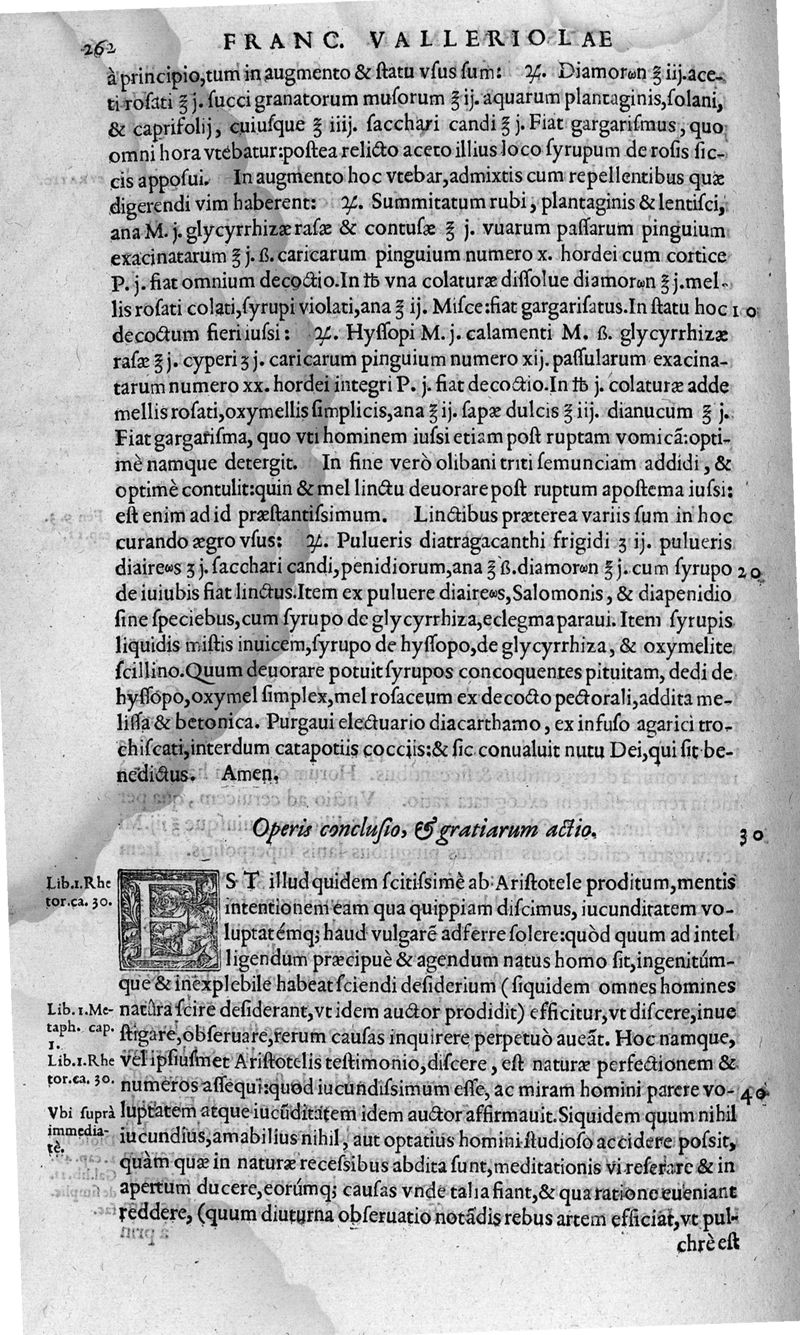 262 FRANC. VALLERIOLAE
à principio,tum in augmento & ſtatu vſus ſum: ℞. Diamorωn ℥ iij.ace-
ti roſati ℥ j. ſucci granatorum muſorum ℥ ij. aquarum plantaginis,ſolani,
& caprifolij, cuiuſque ℥ iiij. ſacchari candi ℥ j. Fiat gargariſmus, quo
omni hora vtebatur:poſtea relicto aceto illius loco ſyrupum de roſis ſic-
cis appoſui. In augmento hoc vtebar,admixtis cum repellentibus quæ
digerendi vim haberent: ℞. Summitatum rubi, plantaginis & lentiſci,
ana M. j. glycyrrhizæ raſæ & contuſæ ℥ j. vuarum paſſarum pinguium
exacinatarum ℥ j. ß. caricarum pinguium numero x. hordei cum cortice
P. j. fiat omnium decoctio.In ℔ vna colaturæ diſſolue diamorωn ℥ j.mel-
lis roſati colati,ſyrupi violati,ana ℥ ij. Miſce:fiat gargariſatus.In ſtatu hoc 10
decoctum fieri iuſsi: ℞. Hyſſopi M. j. calamenti M. ß. glycyrrhizæ
raſæ ℥ j. cyperi ʒ j. caricarum pinguium numero xij. paſſularum exacina-
tarum numero xx. hordei integri P. j. fiat decoctio.In ℔ j. colaturæ adde
mellis roſati,oxymellis ſimplicis,ana ℥ ij. ſapæ dulcis ℥ iij. dianucum ℥ j.
Fiat gargariſma, quo vti hominem iuſsi etiam poſt ruptam vomicã:opti-
mè namque detergit. In fine verò olibani triti ſemunciam addidi, &
optimè contulit:quin & mel linctu deuorare poſt ruptum apoſtema iuſsi:
eſt enim ad id præſtantiſsimum. Linctibus præterea variis ſum in hoc
curando ægro vſus: ℞. Pulueris diatragacanthi frigidi ʒ ij. pulueris
diaireωs ʒ j. ſacchari candi,penidiorum,ana ℥ ß.diamorωn ℥ j. cum ſyrupo 20
de iuiubis fiat linctus.Item ex puluere diaireωs,Salomonis, & diapenidio
ſine ſpeciebus,cum ſyrupo de glycyrrhiza,eclegma paraui. Item ſyrupis
liquidis miſtis inuicem,ſyrupo de hyſſopo,de glycyrrhiza, & oxymelite
ſcillino.Quum deuorare potuit ſyrupos concoquentes pituitam, dedi de
hyſſopo,oxymel ſimplex,mel roſaceum ex decocto pectorali,addita me-
liſſa & betonica. Purgaui electuario diacarthamo, ex infuſo agarici tro-
chiſcati,interdum catapotiis cocciis:& ſic conualuit nutu Dei,qui ſit be-
nedictus. Amen.
Operis concluſio, & gratiarum actio. 30
Lib.1.Rhe EST illud quidem ſcitiſsimè ab Ariſtotele proditum,mentis
tor.ca. 30. intentionem eam qua quippiam diſcimus, iucunditatem vo-
luptatémq; haud vulgarẽ adferre ſolere:quòd quum ad intel
ligendum præcipuè & agendum natus homo ſit,ingenitúm-
que & inexplebile habeat ſciendi deſiderium (ſiquidem omnes homines
Lib. 1.Me- natûra ſcire deſiderant,vt idem auctor prodidit) efficitur,vt diſcere,inue
taph. cap. ſtigare,obſeruare,rerum cauſas inquirere perpetuò aueãt. Hoc namque,
1.
Lib.1.Rhe vel ipſiuſmet Ariſtotelis teſtimonio,diſcere, eſt naturæ perfectionem &
tor.ca. 30. numeros aſſequi:quod iucundiſsimum eſſe, ac miram homini parere vo- 40
Vbi ſuprà luptatem atque iucũditatem idem auctor affirmauit.Siquidem quum nihil
immedia- iucundius,amabilius nihil, aut optatius homini ſtudioſo accidere poſsit,
tè. quàm quæ in naturæ receſsibus abdita ſunt,meditationis vi reſerare & in
apertum ducere,eorúmq; cauſas vnde talia fiant,& qua ratione eueniant
reddere, (quum diuturna obſeruatio notãdis rebus artem efficiat,vt pul-
chrè eſt